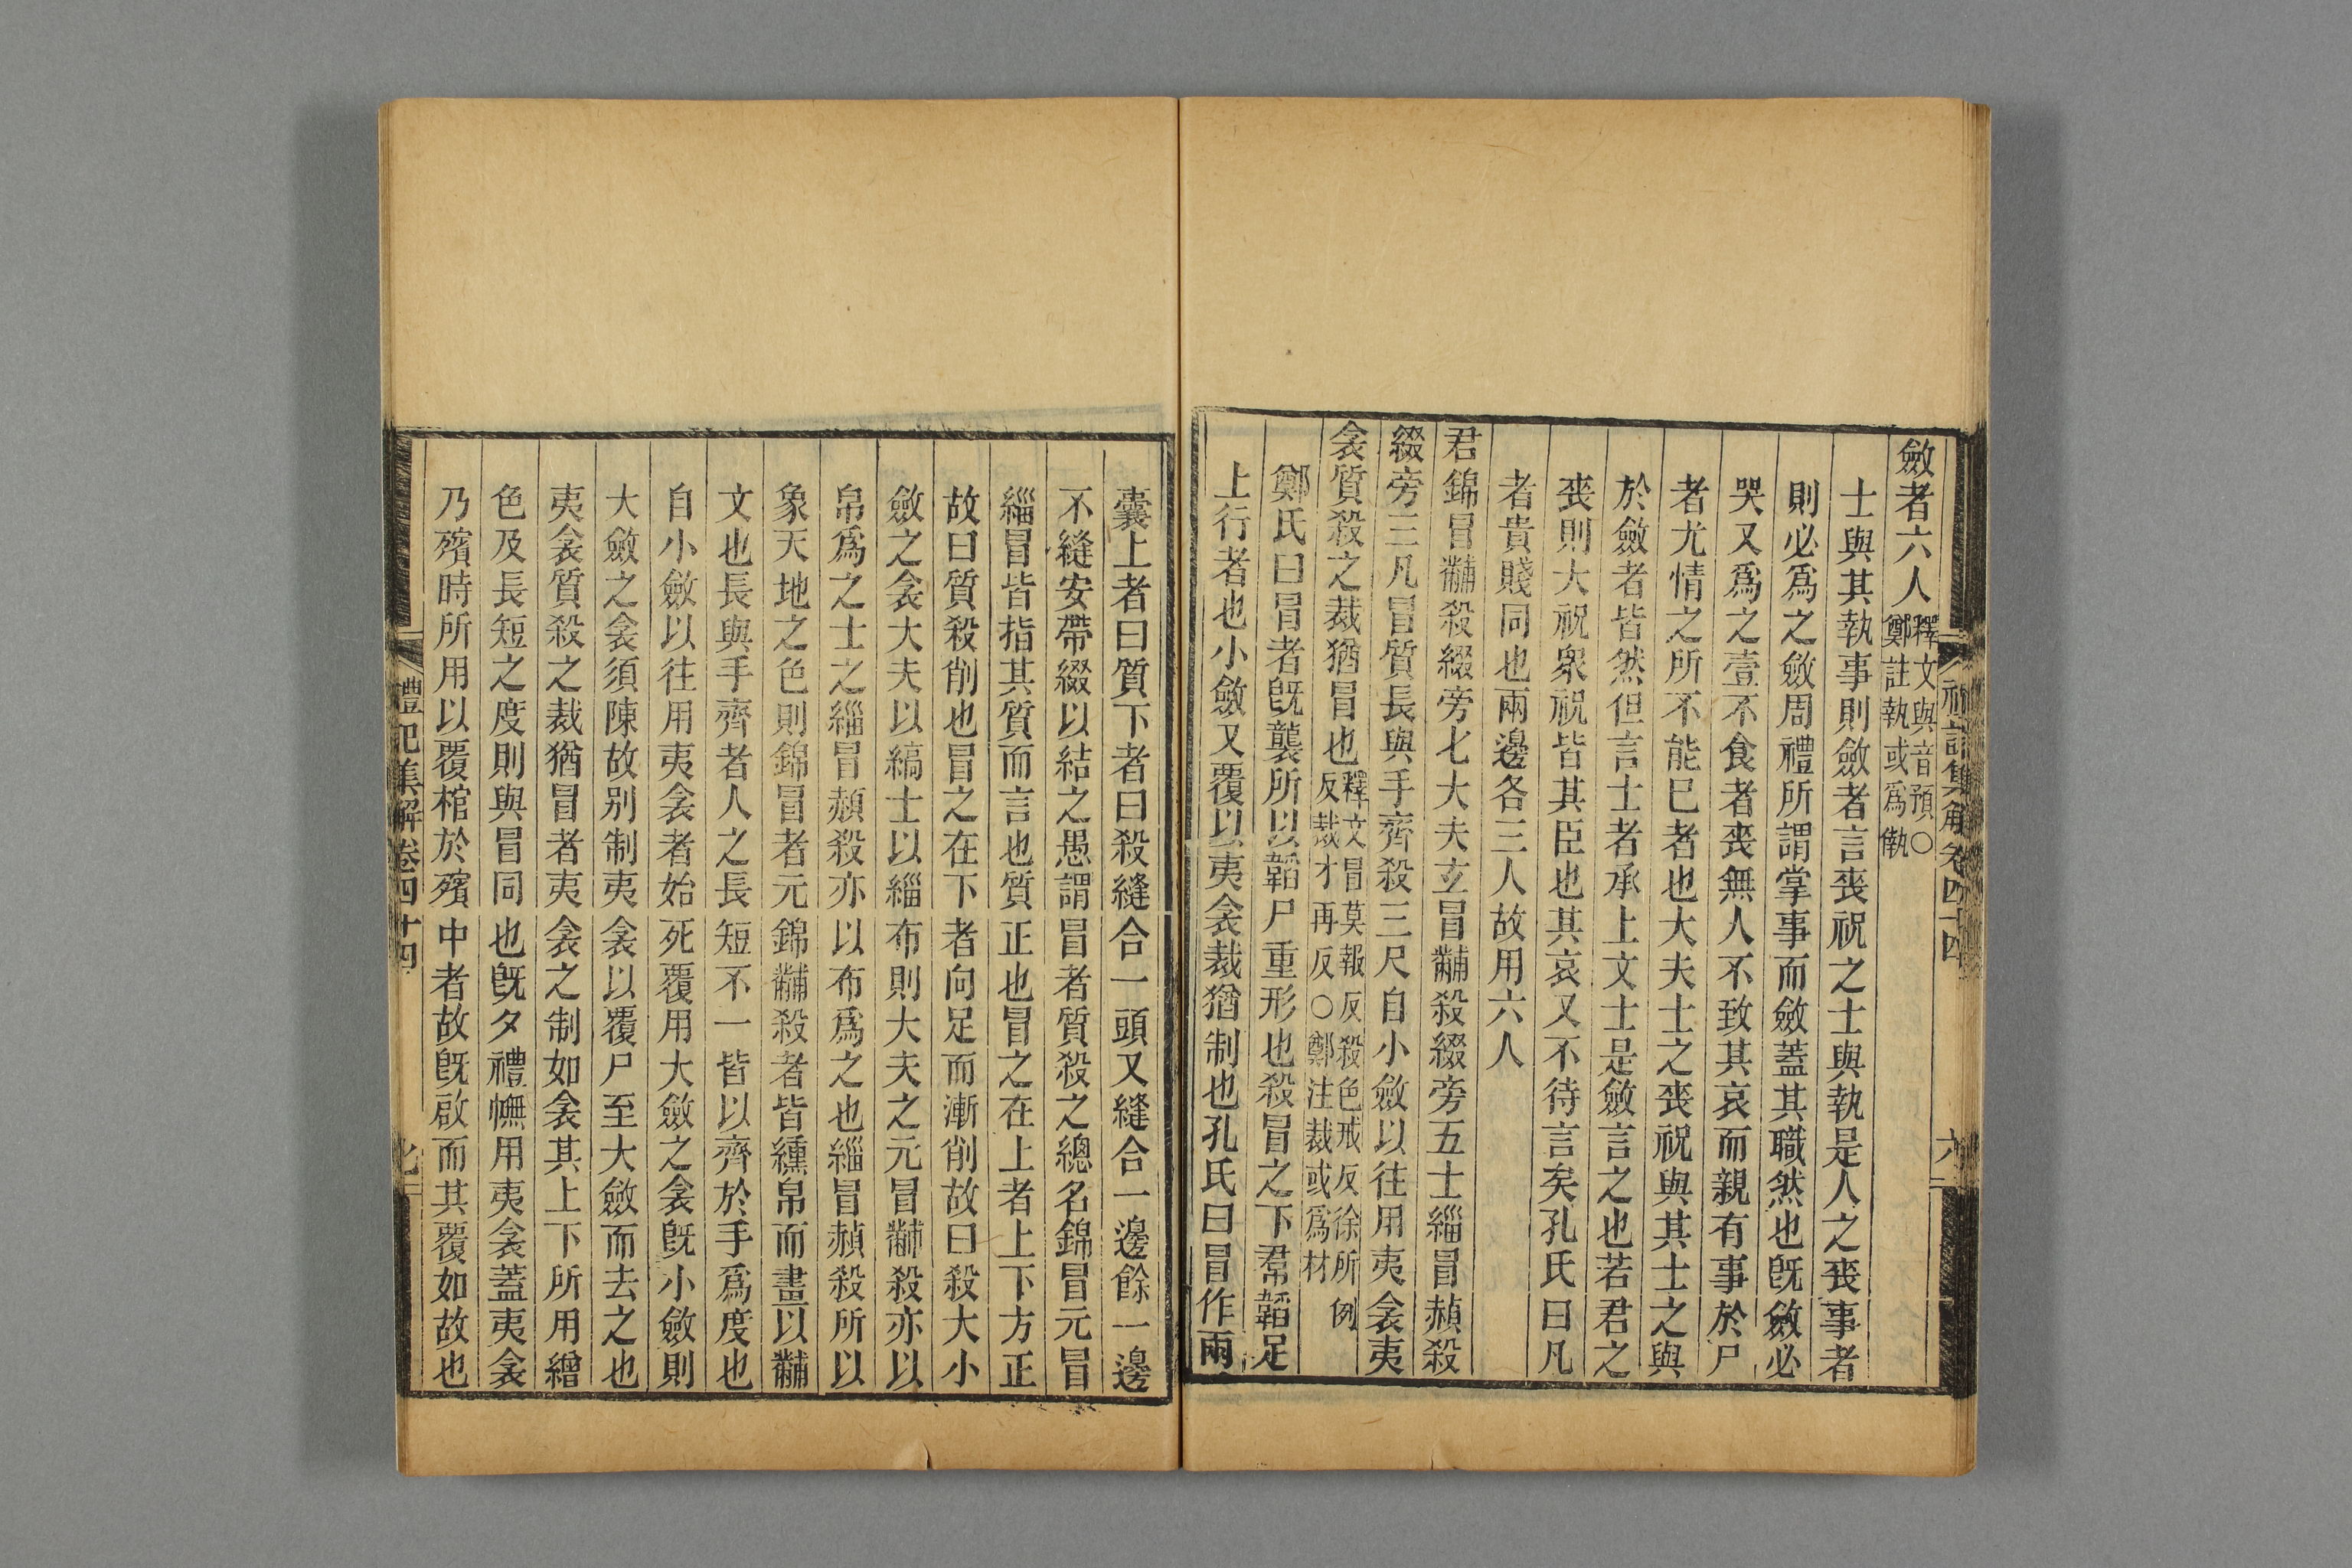 斂者六人釋文與音預○鄭註執或爲㒇
士與其執事則斂者言喪祝之士與執是人之喪事者
則必爲之斂周禮所謂掌事而斂蓋其職然也旣斂必
哭又爲之壹不食者喪無人不致其哀而親有事於尸
者尤情之所不能已者也大夫士之喪祝與其士之與
於斂者皆然但言士者承上文士是斂言之也若君之
喪則大祝衆祝皆其臣也其哀又不待言矣孔氏曰凡
者貴賤同也兩邊各三人故用六人
君錦冒黼殺綴旁七大夫玄冒黼殺綴旁五士緇冒赬殺
綴旁三凡冒質長與手齊殺三尺自小斂以往用夷衾夷
衾質殺之裁猶冒也釋文冒莫報反殺色戒反徐所例反裁才再反○鄭注裁或爲材
鄭氏曰冒者旣襲所以韜尸重形也殺冒之下帬韜足
上行者也小斂又覆以夷衾裁猶制也孔氏曰冒作兩
囊上者曰質下者曰殺縫合一頭又縫合一邊餘一邊
不縫安帶綴以結之愚謂冒者質殺之總名錦冒元冒
緇冒皆指其質而言也質正也冒之在上者上下方正
故曰質殺削也冒之在下者向足而漸削故曰殺大小
斂之衾大夫以縞士以緇布則大夫之元冒黼殺亦以
帛爲之士之緇冒赬殺亦以布爲之也緇冒赬殺所以
象天地之色則錦冒者元錦黼殺者皆纁帛而畫以黼
文也長與手齊者人之長短不一皆以齊於手爲度也
自小斂以往用夷衾者始死覆用大斂之衾旣小斂則
大斂之衾須陳故别制夷衾以覆尸至大斂而去之也
夷衾質殺之裁猶冒者夷衾之制如衾其上下所用繒
色及長短之度則與冒同也旣夕禮幠用夷衾蓋夷衾
乃殯時所用以覆棺於殯中者故旣啟而其覆如故也
禮記集解卷四十四